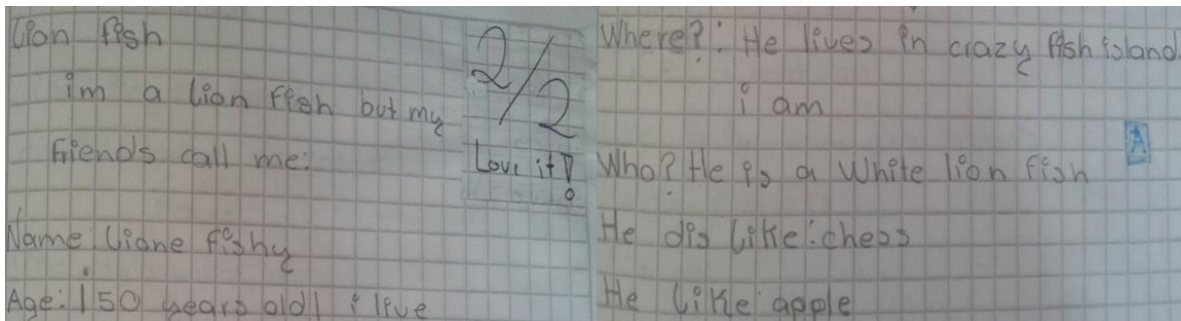 Lion fish
im a lion fish but my
friends call me:
2/2
Love it!
Name: Liane fishy
Age: 150 years old! i live
Where?: He lives in crazy fish island.
i am
A
Who? He is a White lion fish
He dis like: chess
He like: apple